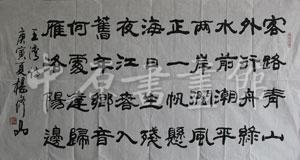 客路青山
外行舟綠
水前潮平
兩岸闊風
正一帆懸
海日生殘
夜江春入
舊年鄉書
何處達歸
雁洛陽邊
王灣詩
庚寅夏楊